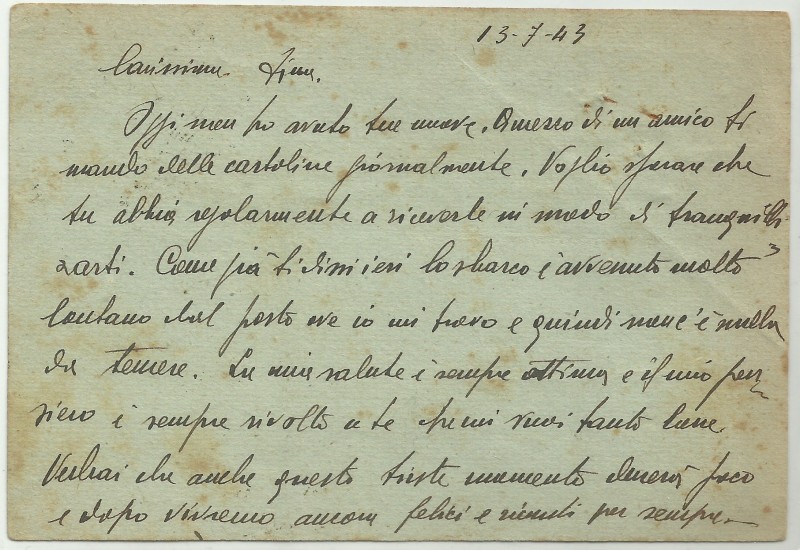 13-7-43
Carissima Lina.
Oggi non ho avuto tue nuove. A mezzo di un amico ti
mando delle cartoline giornalmente. Voglio sperare che
tu abbia regolarmente a riceverle in modo di tranquilli
zarti. Come già ti dissi ieri lo sbarco è avvenuto molto
lontano dal posto ove io mi trovo e quindi non c'è nulla
da temere. La mia salute è sempre ottima e il mio pen-
siero è sempre rivolto a te che mi vuoi tanto bene.
Vedrai che anche questo triste momento durerà poco
e dopo vivremo ancora felici e riuniti per sempre.